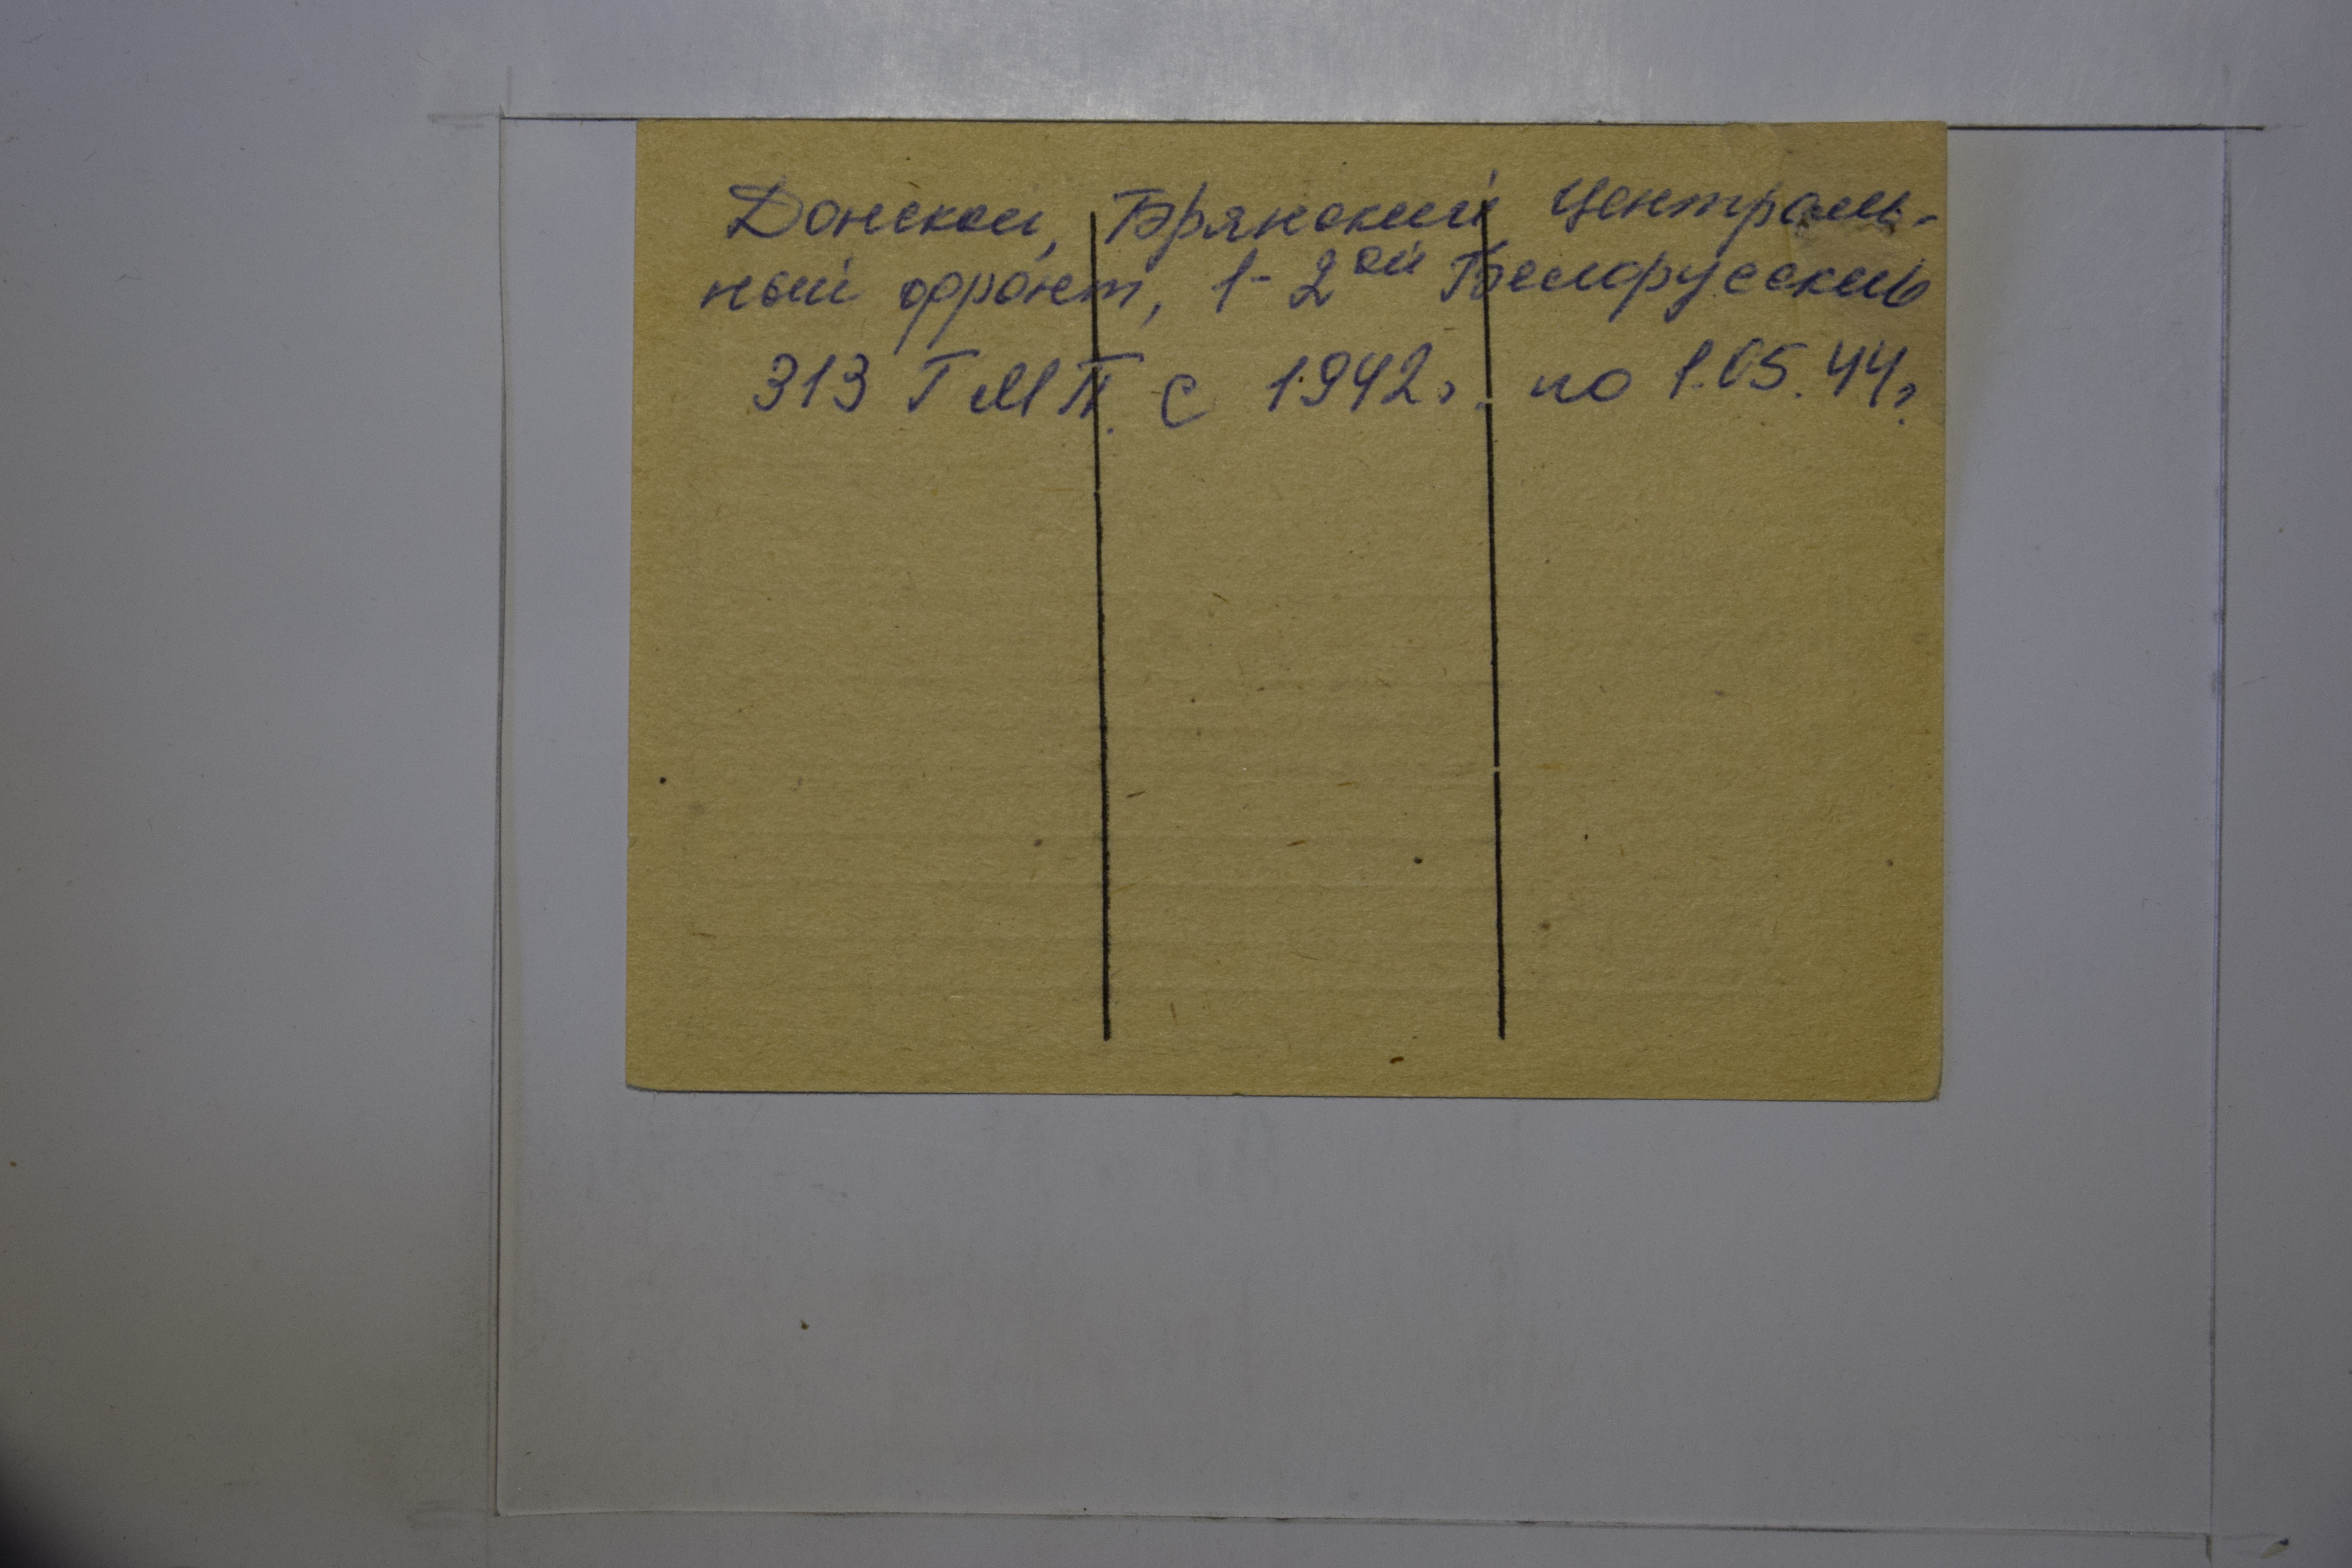 Донской, Брянский Централь-
ный фронт, 1-2ой Белорусский
313 ГМП. с 1942г. по 1.05.44г.